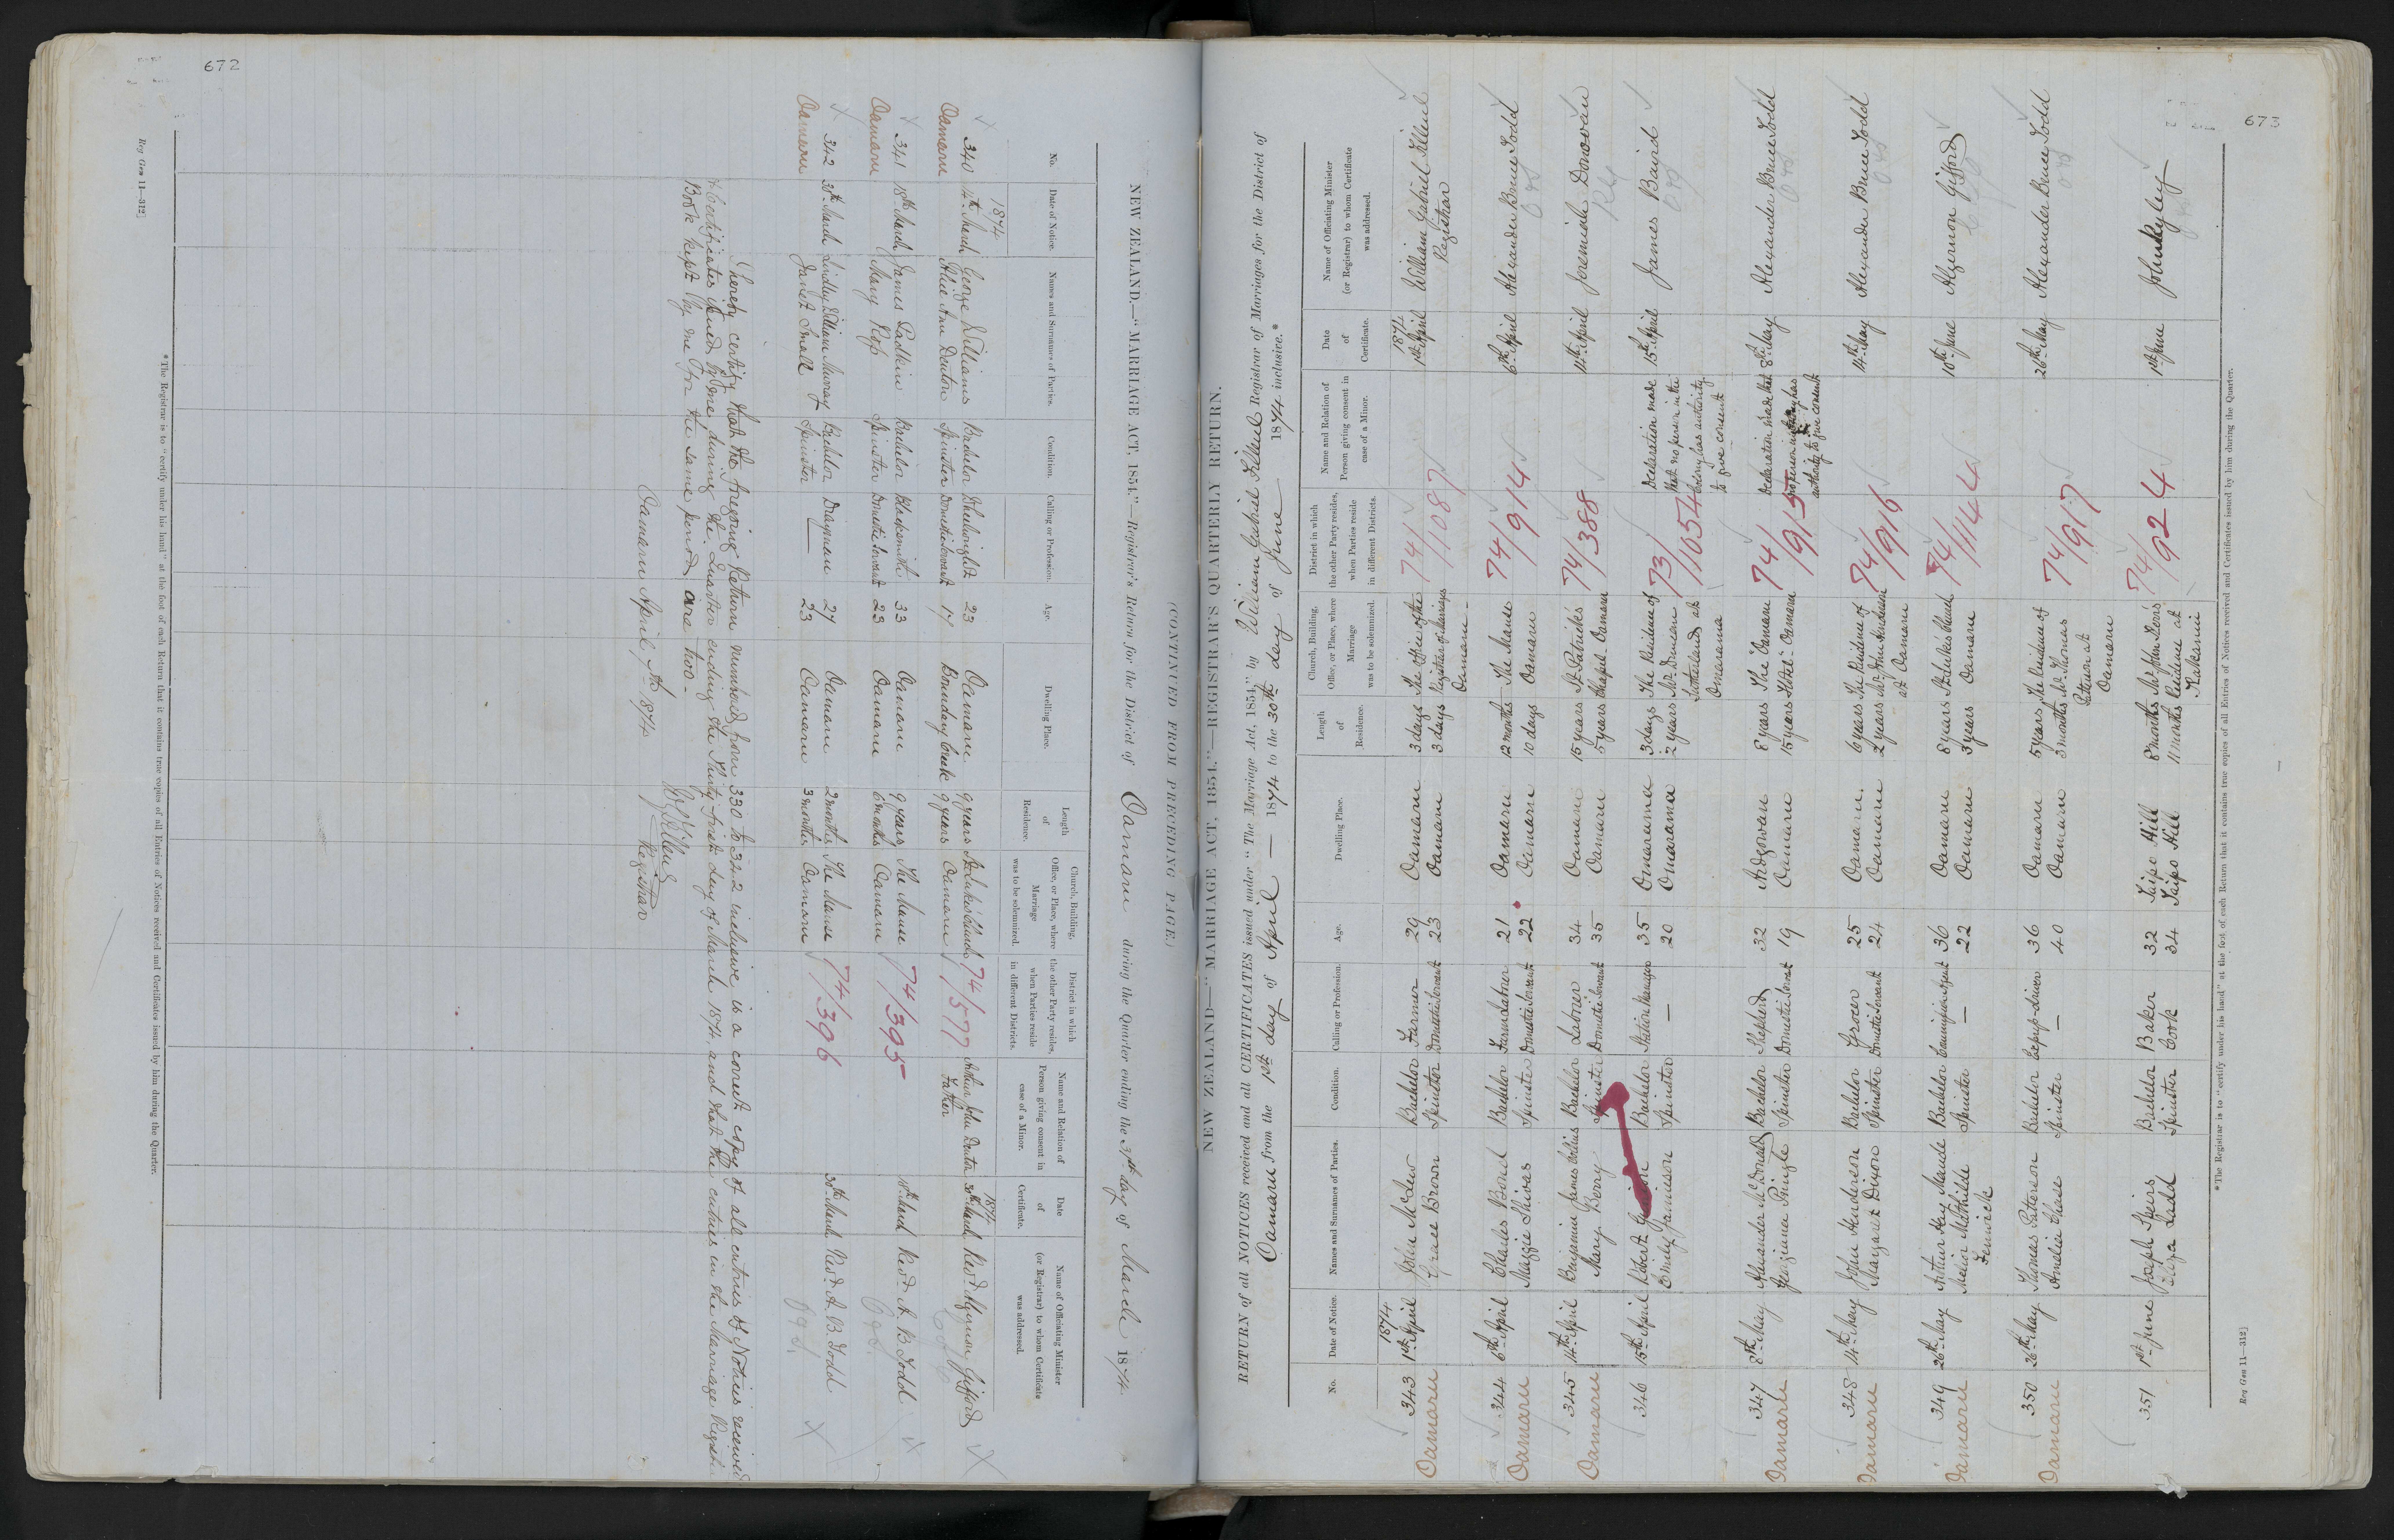 672
(CONTINUED FROM PRECEDING PAGE.)
NEW ZEALAND.—"MARRIAGE ACT, 1854."—Registrar's Return for the District of Oamaru during the Quarter ending the 31st day of March 1874.
No. Date of Notice. Names and Surnames of Parties. Condition. Calling or Profession. Age. Dwelling Place. Length of Residence. Church, Building, Office, or Place, where Marriage was to be solemnized. District in which the other Party resides, when Parties reside in different Districts. Name and Relation of Person giving consent in case of a Minor. Date of Certificate. Name of Officiating Minister (or Registrar) to whom Certificate was addressed.
1874 1874
340 14th March George Williams Bachelor Wheelwright 23 Oamaru 9 years St. Luke's Church 74/577 Arthur John Denton 30th March Revd. Algernon Gifford
Oamaru Alice Ann Denton Spinster Domestic Servant 17 Boundary Creek 9 years Oamaru Father
341 18th March James Bachelor Blacksmith 33 Oamaru 9 years The Manse 74/395 18th March Revd. A. B. Todd
Oamaru Mary Spinster Domestic Servant 23 Oamaru 6 months Oamaru
342 30th March Lindley William Murray Bachelor Drayman 27 Oamaru 2 months The Manse 74/396 30th March Revd. A. B. Todd
Oamaru Janet Small Spinster — 23 Oamaru 3 months Oamaru
I hereby certify that the foregoing Return numbered from 330 to 342 inclusive is a correct copy of all entries of Notices received
& Certificates issued by me during the Quarter ending the Thirty first day of March 1874, and that the entries in the Marriage Register
Book kept by me for the same period are two.
Oamaru April 1874
Registrar
*The Registrar is to "certify under his hand" at the foot of each Return that it contains true copies of all Entries of Notices received and Certificates issued by him during the Quarter.
Reg Gen 11—312]
673
NEW ZEALAND.—"MARRIAGE ACT, 1854."—REGISTRAR'S QUARTERLY RETURN.
RETURN of all NOTICES received and all CERTIFICATES issued under "The Marriage Act, 1854," by William Gabriel Filleul Registrar of Marriages for the District of
Oamaru from the 1st day of April — 1874 to the 30th day of June 1874 inclusive.*
No. Date of Notice. Names and Surnames of Parties. Condition. Calling or Profession. Age. Dwelling Place. Length of Residence. Church, Building, Office, or Place, where Marriage was to be solemnized. District in which the other Party resides, when Parties reside in different Districts. Name and Relation of Person giving consent in case of a Minor. Date of Certificate. Name of Officiating Minister (or Registrar) to whom Certificate was addressed.
1874 1874
343 1st April John McLew Bachelor Farmer 29 Oamaru 3 days The office of the 74/1087 1st April William Gabriel Filleul
Oamaru Grace Brown Spinster Domestic Servant 23 Oamaru 3 days Registrar of Marriages Registrar
Oamaru
344 6th April Charles Bond Bachelor Farm Labourer 21 Oamaru 12 months The Manse 74/914 6th April Alexander Bruce Todd
Oamaru Maggie Shivas Spinster Domestic Servant 22 Oamaru 10 days Oamaru
345 14th April Benjamin James Bachelor Laborer 34 Oamaru 15 years St. Patrick's 74/388 14th April Jeremiah Donovan
Oamaru Mary Berry Spinster Domestic Servant 35 Oamaru 5 years Chapel - Oamaru
346 15th April Robert Bachelor Station Manager 35 Omarama 3 days The Residence of 73/1054 Declaration made 15th April James Baird
Emily Jamieson Spinster — 20 Omarama 2 years Mr. Duncan that no person in the
Sutherland at Colony has authority
Omarama to give consent
347 8th May Alexander McDonald Bachelor Shepherd 32 8 years The Oamaru 74/915 Declaration made that 8th May Alexander Bruce Todd
Oamaru Georgiana Pringle Spinster Domestic Servant 19 Oamaru 15 years Hotel - Oamaru no person in Colony has
authority to give consent
348 14th May John Henderson Bachelor Grocer 25 Oamaru. 6 years The Residence of 74/916 14th May Alexander Bruce Todd
Oamaru Margaret Dixon Spinster Domestic Servant 24 Oamaru 2 years Mr. John Henderson
at Oamaru
349 26th May Arthur Hay Maude Bachelor Commission Agent 36 Oamaru 8 years St. Luke's Church 74/1144 10th June Algernon Gifford
Oamaru Mathilde Spinster — 22 Oamaru 3 years Oamaru
Fenwick
350 26th May Thomas Paterson Bachelor Express-driver 36 Oamaru 5 years The Residence of 74/917 26th May Alexander Bruce Todd
Oamaru Amelia Chase Spinster — 40 Oamaru 3 months Mr. Thomas
Paterson at
Oamaru
351 1st June Joseph Speirs Bachelor Baker 32 Taipo Hill 8 months Mr. John 74/924 1st June John Ryley
Eliza Ladd Spinster Cook 34 Taipo Hill 11 months Residence at
Kakanui
*The Registrar is to "certify under his hand" at the foot of each Return that it contains true copies of all Entries of Notices received and Certificates issued by him during the Quarter.
Reg Gen 11—312]